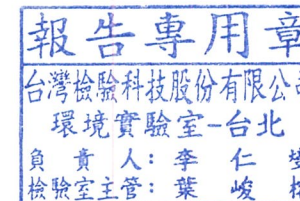 報告專用章
台灣檢驗科技股份有限公司
環境實驗室-台北
負責人:李仁
檢驗室主管:葉峻